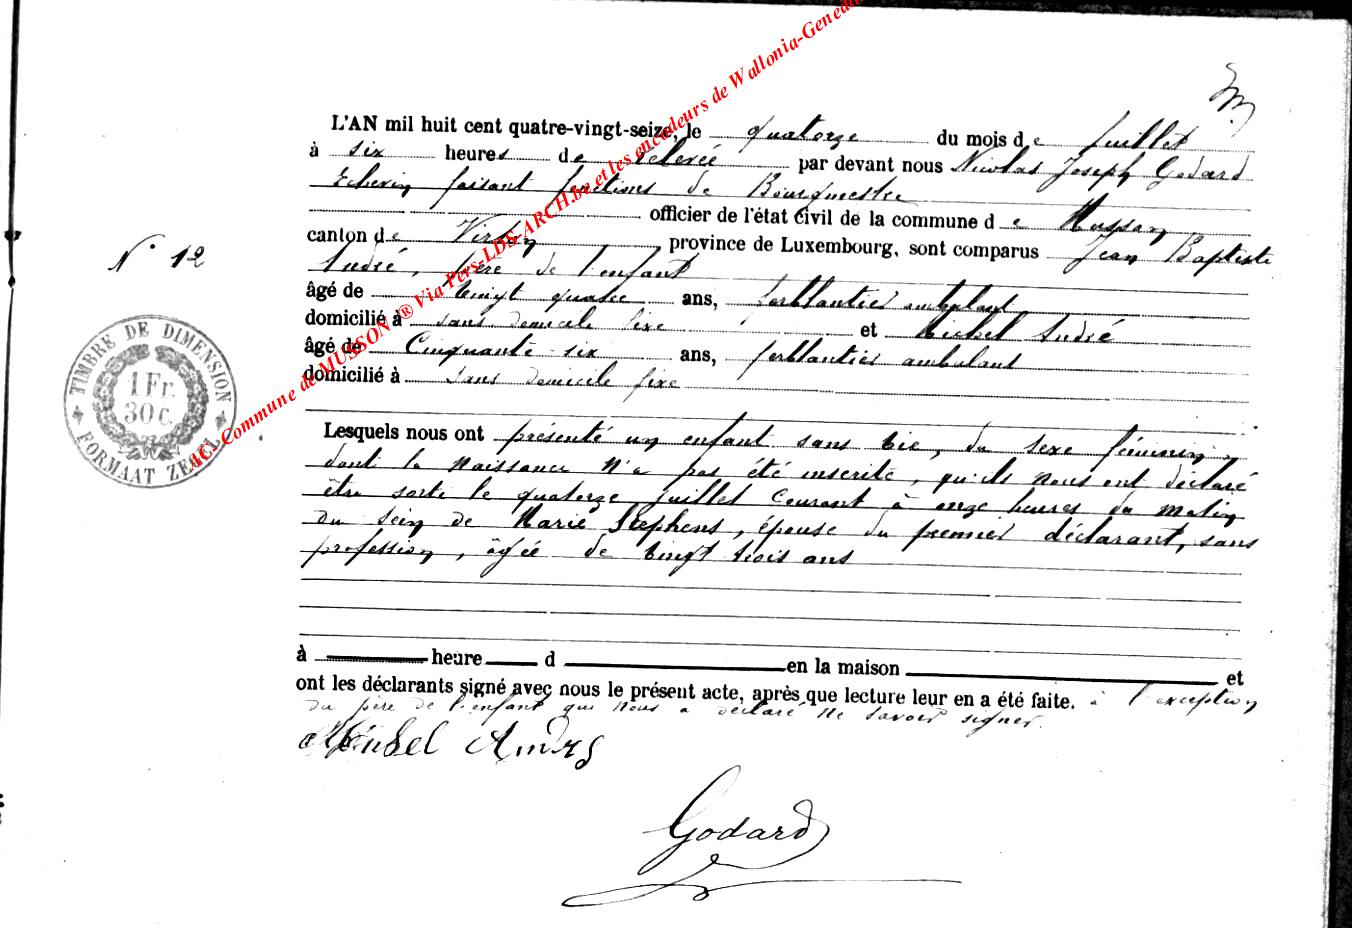 L'AN mil huit cent quatre-vingt-seize, le quatorze du mois de juillet
à six heures de relevée par devant nous Nicolas Joseph Godard
Echevin faisant fonctions de Bourgmestre
officier de l'état civil de la commune de Musson
canton de Virton, province de Luxembourg, sont comparus Jean Baptiste
André, père de l'enfant
N° 12
âgé de vingt quatre ans, ferblantier ambulant
domicilié à sans domicile fixe et Michel André
âgé de Cinquante-six ans, ferblantier ambulant
domicilié à sans domicile fixe
TIMBRE DE DIMENSION
1 Fr.
30 c.
FORMAAT ZEGEL
Lesquels nous ont présenté un enfant sans vie, du sexe féminin,
dont la naissance n'a pas été inscrite, qu'ils nous ont déclaré
être sorti le quatorze juillet courant à onze heures du matin
du sein de Marie Stephens, épouse du premier déclarant, sans
profession, âgée de vingt trois ans
à heure d en la maison et
ont les déclarants signé avec nous le présent acte, après que lecture leur en a été faite. à l'exception
du père de l'enfant qui nous a déclaré ne savoir signer.
Michel André
Godard
ACI. Commune de MUSSON ® Via Pers-LDS-ARCH.be et les encodeurs de Wallonia-Gened